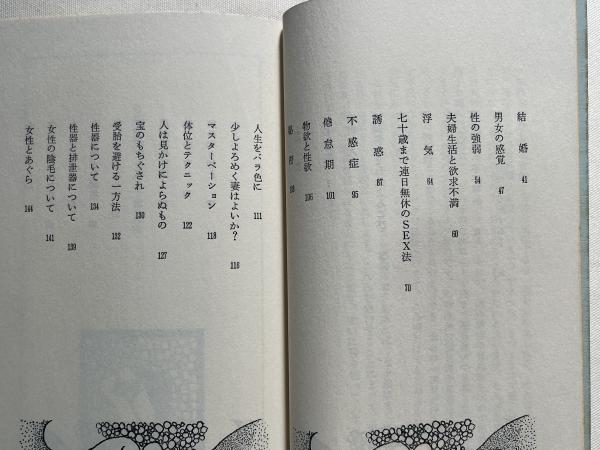 結婚 41
男女の感覚 47
性の強弱 54
夫婦生活と欲求不満 60
浮気 64
七十歳まで連日無休のSEX法 70
誘惑 87
不感症 95
倦怠期 101
物欲と性欲 106
108
人生をバラ色に 111
少しよろめく妻はよいか? 116
マスターベーション 118
体位とテクニック 122
人は見かけによらぬもの 127
宝のもちぐされ 130
受胎を避ける一方法 132
性器について 134
性器と排泄器について 139
女性の陰毛について 141
女性とあぐら 144